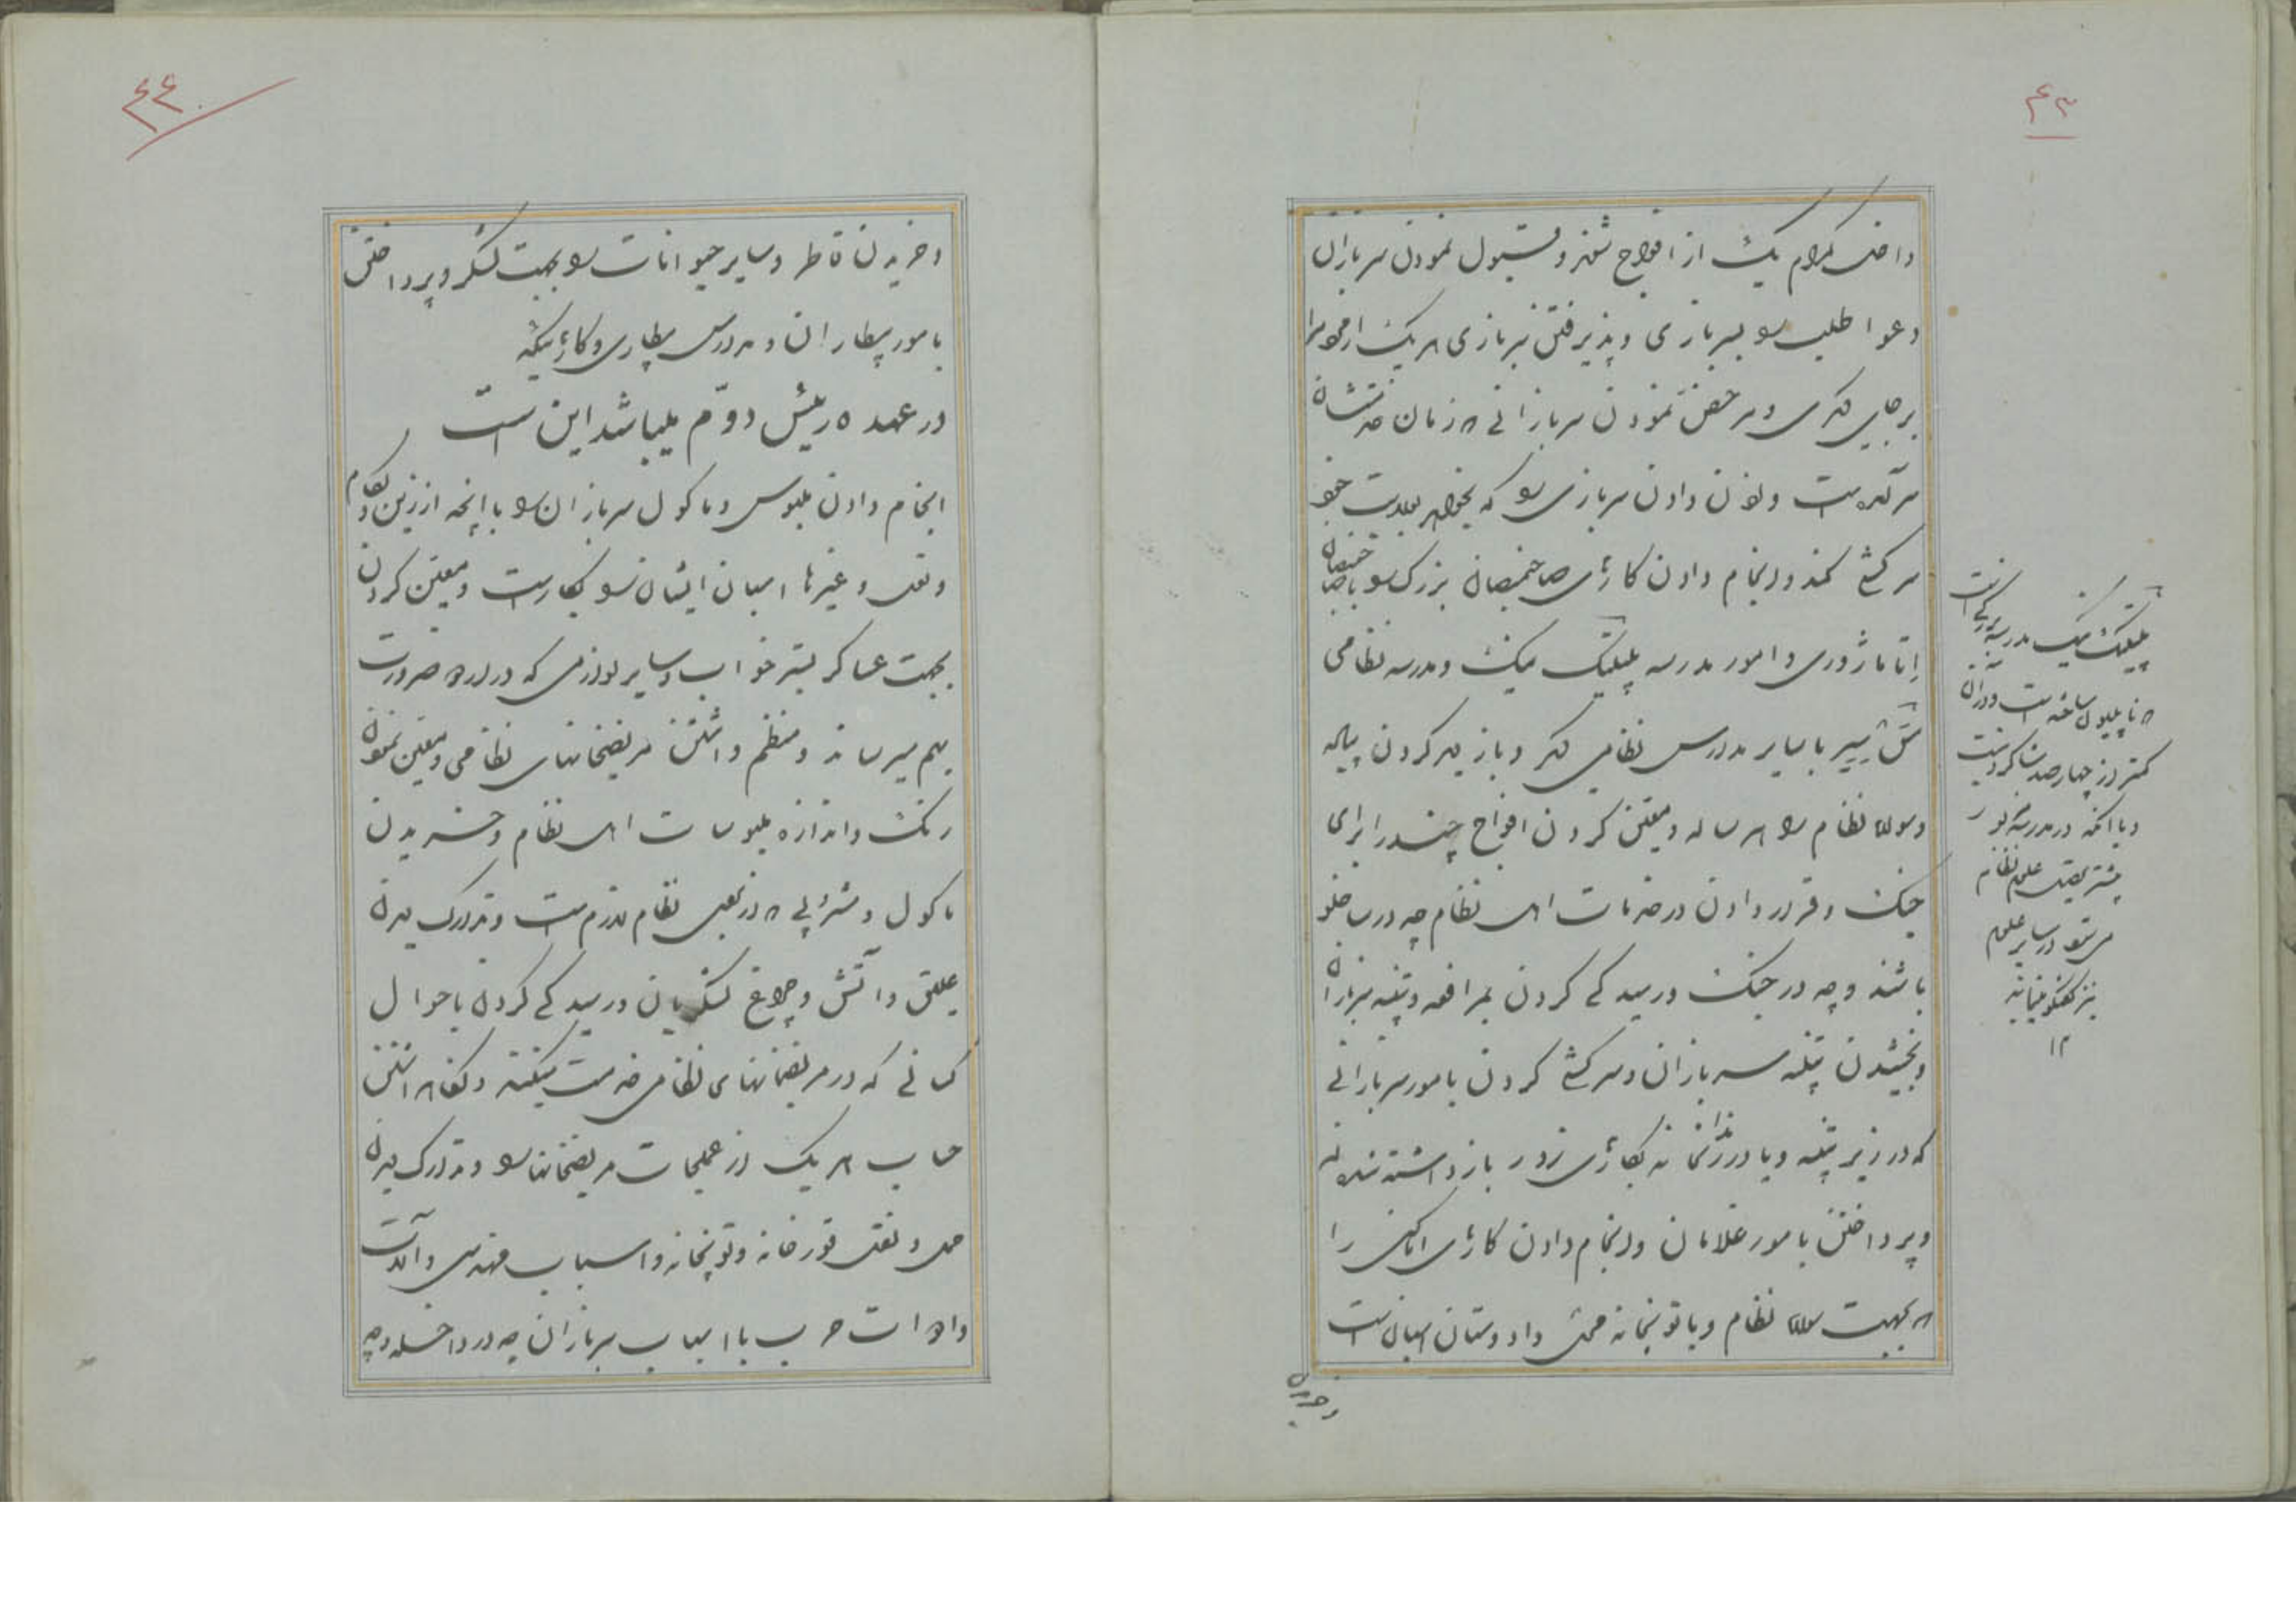 ۴۳
داخل کدام یک از افواج شوند و قبول نمودن سربازان
دعوا طلب را بسربازی و پذیرفتن سربازی هر یک از
برجای دیگری و مرخص نمودن سربازانی که زمان خدمتشان
سر آمده است و اذن دادن سربازی را که بخواهد بولایت خود
سرکشی کند و انجام دادن کارهای صاحبمنصبان بزرگ را با صاحبمنصبان
اِتاماژوری و امور مدرسه پلیتک نیک و مدرسه نظامی
سَن سِیر با سایر مدارس نظامی دیگر و بازدید کردن پیاده
و سواره نظام را هر ساله و معین کردن افواج چند را برای
جنگ و قرار دادن در خدمات اهل نظام چه در ساخلو
باشند و چه در جنگ و رسیدگی کردن بمرافعه و تنبیه سربازان
و بخشیدن تنبیه سربازان و سرکشی کردن بامور سربازانی
که در زیر تنبیه و یا در زندانخانه بکارهای زور باز داشته شده اند
و پرداختن بامور غلامان و انجام دادن کارهای اماکنی را
که بجهت سواره نظام و یا توپخانه محل داد و ستان اسبان است
و خریدن
پلیتک نیک مدرسه بزرگی است
که ناپلیون ساخته است و در آن
کمتر از چهارصد شاگرد نیست
و با آنکه در مدرسه مزبور
بیشتر تحصیل علوم نظام
می شود در سایر علوم
نیز گفتگو مینمایند
۱۲
۴۴
و خریدن قاطر و سایر حیوانات را بجهت لشکر و پرداختن
بامور بیطاران و مدارس بیطاری و کارهائیکه
در عهده رئیس دوّم میباشد این است
انجام دادن ملبوس و ماکول سربازان را با آنچه از زین و لگام
و نعل و غیرها اسبان ایشان را بکار است و معین کردن
بجهت عساکر بستر خواب و سایر لوازمی که در اردو ضرورت
بهم میرساند و منظم داشتن مریضخانهای نظامی و معین نمودن
رنگ و اندازه ملبوسات اهل نظام و خریدن
ماکول و مشروبی که از برای نظام لازم است و تدارک دیدن
علیق و آتش و چراغ لشکریان و رسیدگی کردن باحوال
کسانی که در مریضخانهای نظامی خدمت میکنند و نگاهداشتن
حساب هر یک از عملجات مریضخانها را و تدارک دیدن
حمل و نقل قورخانه و توپخانه و اسباب مهندسی و آلات
و ادوات حرب با اسباب سربازان چه در داخله و چه